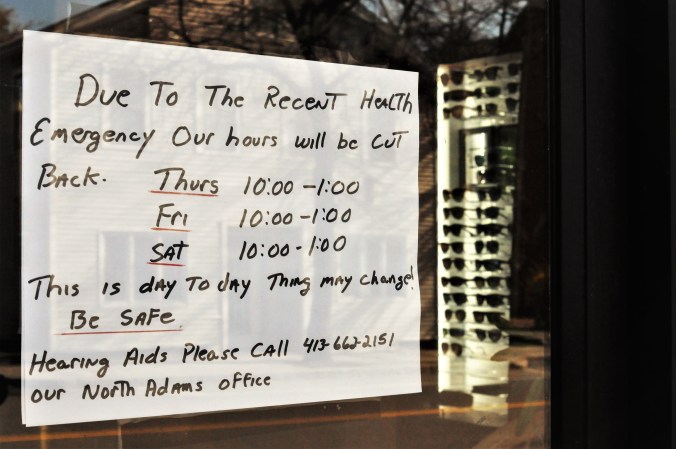 Due To The Recent Health
Emergency Our hours will be Cut
Back. Thurs 10:00 - 1:00
Fri 10:00 - 1:00
SAT 10:00 - 1:00
This is day To day Thing may change!
Be SAFE.
Hearing Aids Please CAll 413-662-2151
our North Adams office